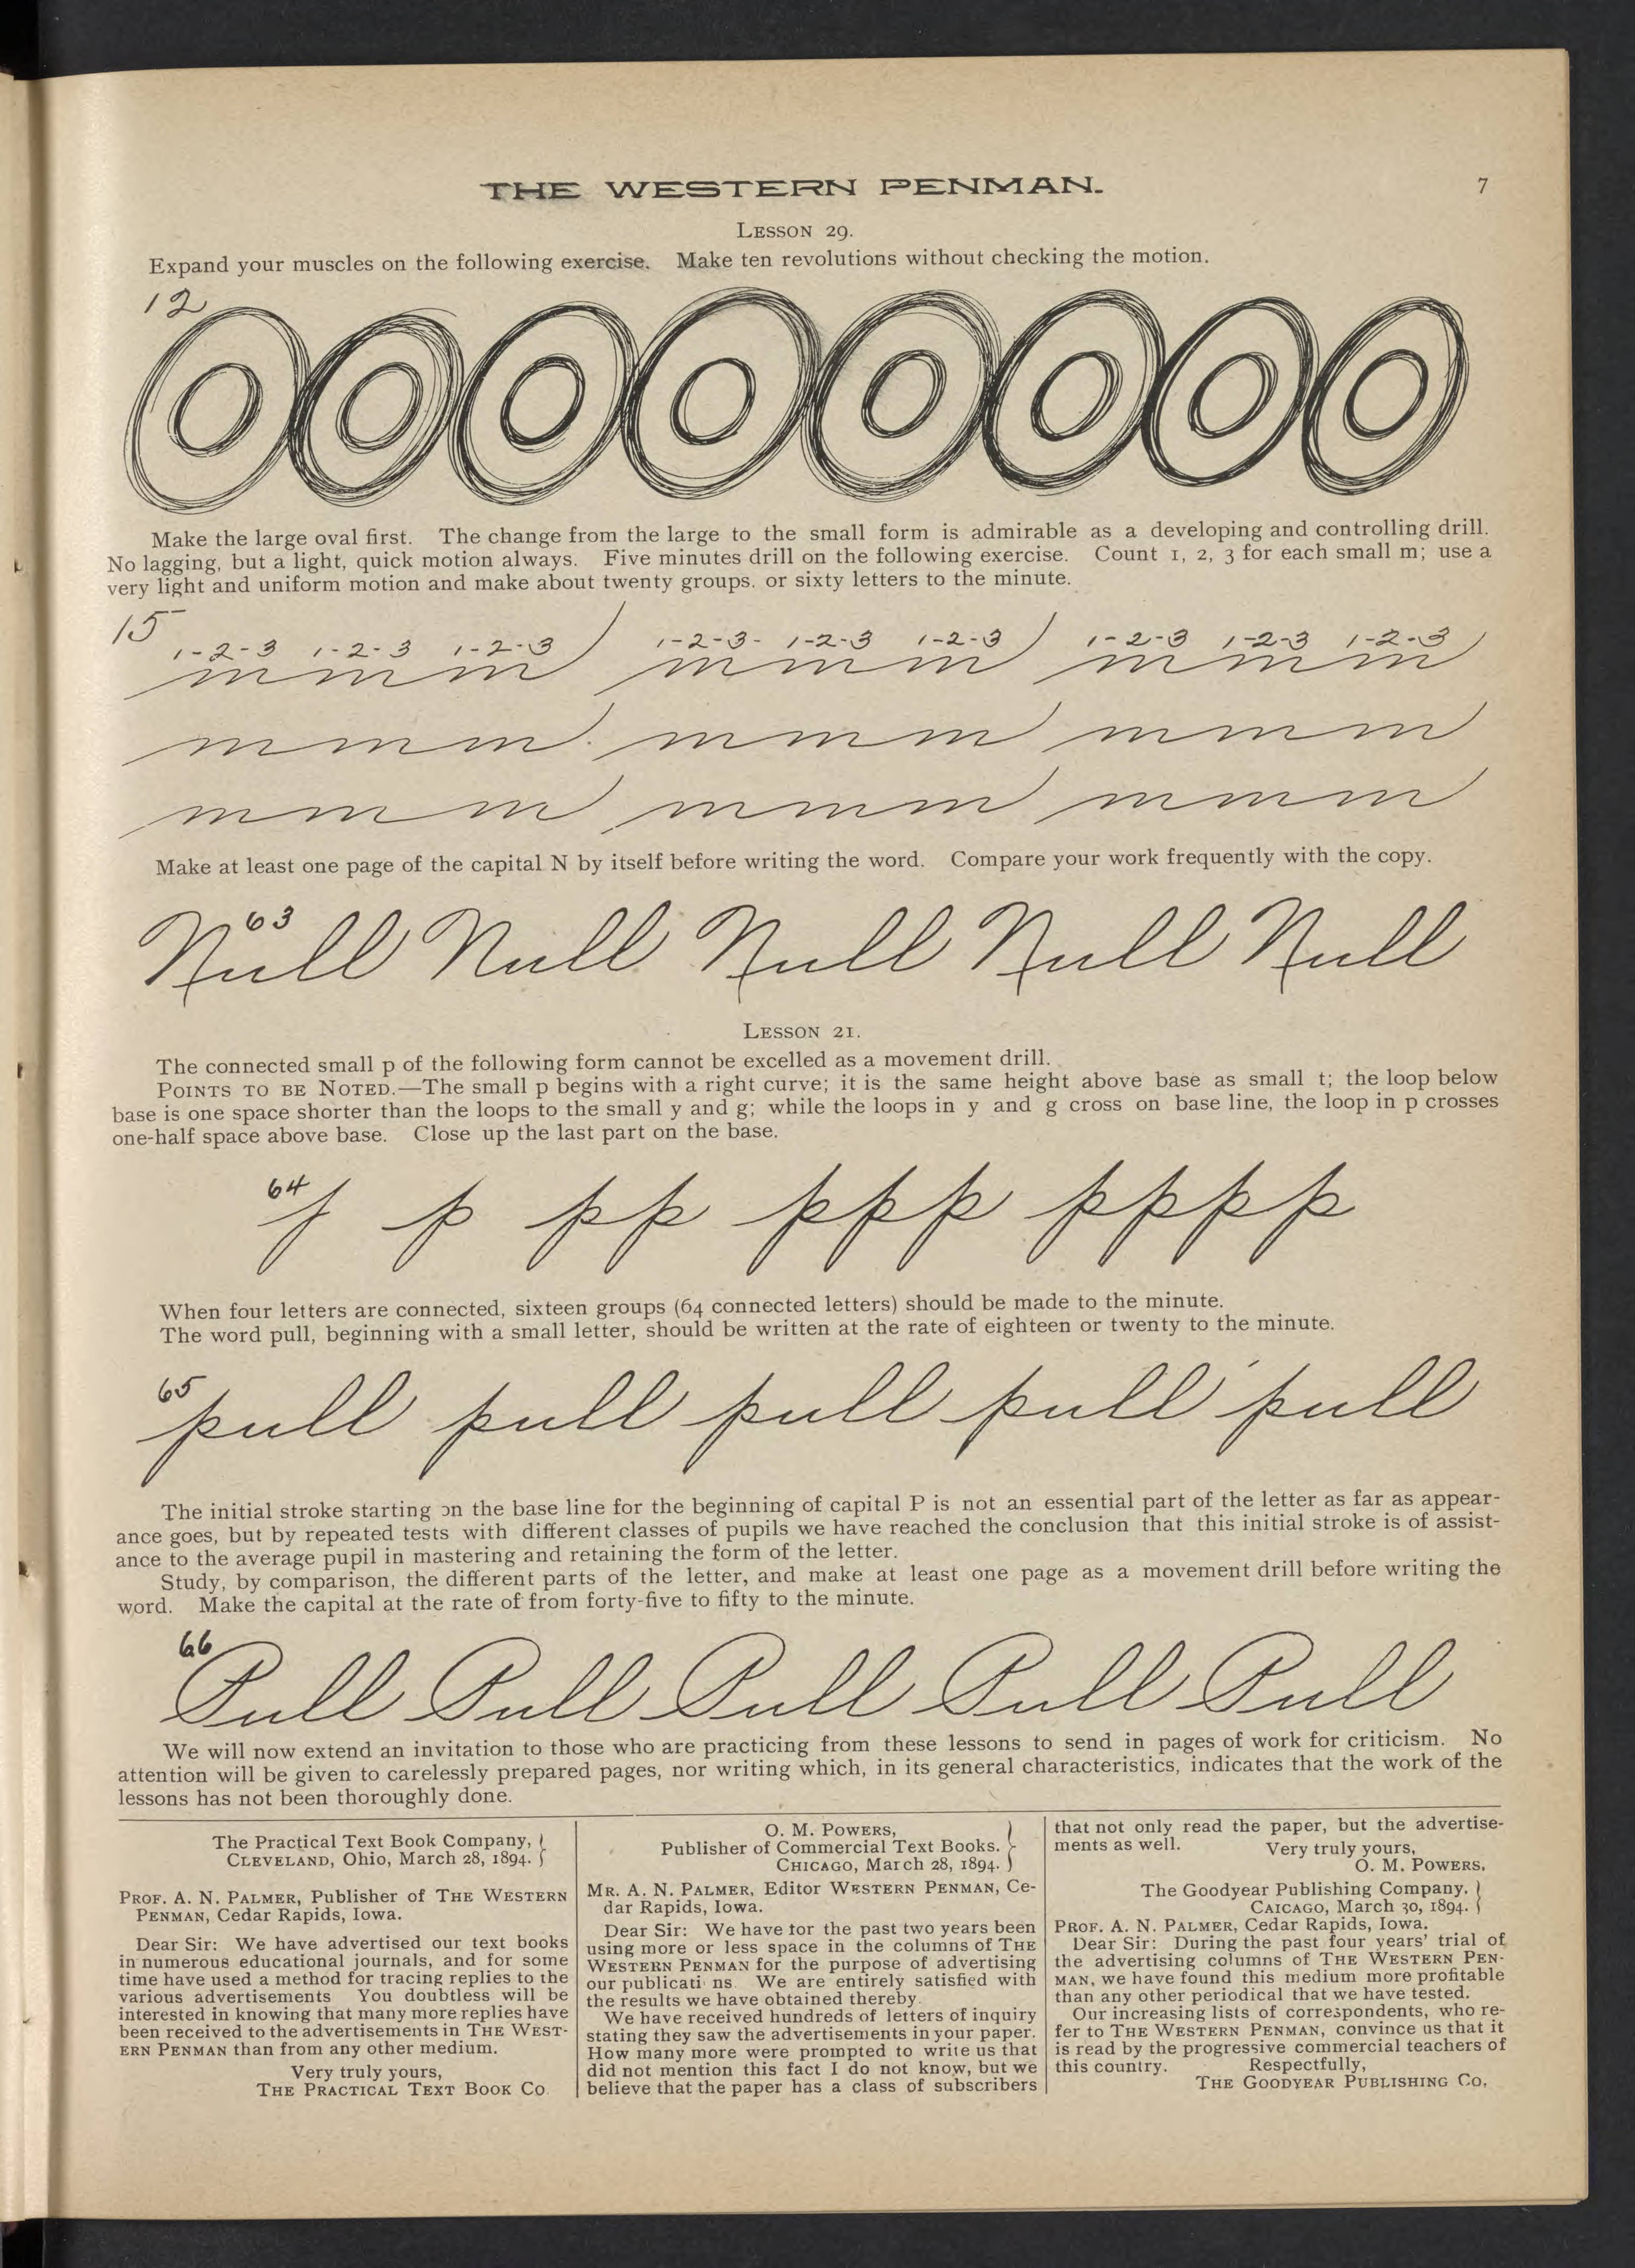 THE WESTERN PENMAN.
7
LESSON 29.
Expand your muscles on the following exercise. Make ten revolutions without checking the motion.
12
Make the large oval first. The change from the large to the small form is admirable as a developing and controlling drill.
No lagging, but a light, quick motion always. Five minutes drill on the following exercise. Count 1, 2, 3 for each small m; use a
very light and uniform motion and make about twenty groups. or sixty letters to the minute.
15
1-2-3 1-2-3 1-2-3 1-2-3- 1-2-3 1-2-3 1-2-3 1-2-3 1-2-3
m m m m m m m m m
m m m m m m m m m
m m m m m m m m m
Make at least one page of the capital N by itself before writing the word. Compare your work frequently with the copy.
63
Null Null Null Null Null
LESSON 21.
The connected small p of the following form cannot be excelled as a movement drill.
POINTS TO BE NOTED.—The small p begins with a right curve; it is the same height above base as small t; the loop below
base is one space shorter than the loops to the small y and g; while the loops in y and g cross on base line, the loop in p crosses
one-half space above base. Close up the last part on the base.
64
p pp ppp pppp
When four letters are connected, sixteen groups (64 connected letters) should be made to the minute.
The word pull, beginning with a small letter, should be written at the rate of eighteen or twenty to the minute.
65
pull pull pull pull pull
The initial stroke starting on the base line for the beginning of capital P is not an essential part of the letter as far as appear-
ance goes, but by repeated tests with different classes of pupils we have reached the conclusion that this initial stroke is of assist-
ance to the average pupil in mastering and retaining the form of the letter.
Study, by comparison, the different parts of the letter, and make at least one page as a movement drill before writing the
word. Make the capital at the rate of from forty-five to fifty to the minute.
66
Pull Pull Pull Pull Pull
We will now extend an invitation to those who are practicing from these lessons to send in pages of work for criticism. No
attention will be given to carelessly prepared pages, nor writing which, in its general characteristics, indicates that the work of the
lessons has not been thoroughly done.
The Practical Text Book Company,
CLEVELAND, Ohio, March 28, 1894.
PROF. A. N. PALMER, Publisher of THE WESTERN
PENMAN, Cedar Rapids, Iowa.
Dear Sir: We have advertised our text books
in numerous educational journals, and for some
time have used a method for tracing replies to the
various advertisements You doubtless will be
interested in knowing that many more replies have
been received to the advertisements in THE WEST-
ERN PENMAN than from any other medium.
Very truly yours,
THE PRACTICAL TEXT BOOK CO.
O. M. POWERS,
Publisher of Commercial Text Books.
CHICAGO, March 28, 1894.
MR. A. N. PALMER, Editor WESTERN PENMAN, Ce-
dar Rapids, Iowa.
Dear Sir: We have for the past two years been
using more or less space in the columns of THE
WESTERN PENMAN for the purpose of advertising
our publicati ns. We are entirely satisfied with
the results we have obtained thereby.
We have received hundreds of letters of inquiry
stating they saw the advertisements in your paper.
How many more were prompted to write us that
did not mention this fact I do not know, but we
believe that the paper has a class of subscribers
that not only read the paper, but the advertise-
ments as well. Very truly yours,
O. M. POWERS.
The Goodyear Publishing Company.
CAICAGO, March 30, 1894.
PROF. A. N. PALMER, Cedar Rapids, Iowa.
Dear Sir: During the past four years' trial of
the advertising columns of THE WESTERN PEN-
MAN, we have found this medium more profitable
than any other periodical that we have tested.
Our increasing lists of correspondents, who re-
fer to THE WESTERN PENMAN, convince us that it
is read by the progressive commercial teachers of
this country. Respectfully,
THE GOODYEAR PUBLISHING CO.